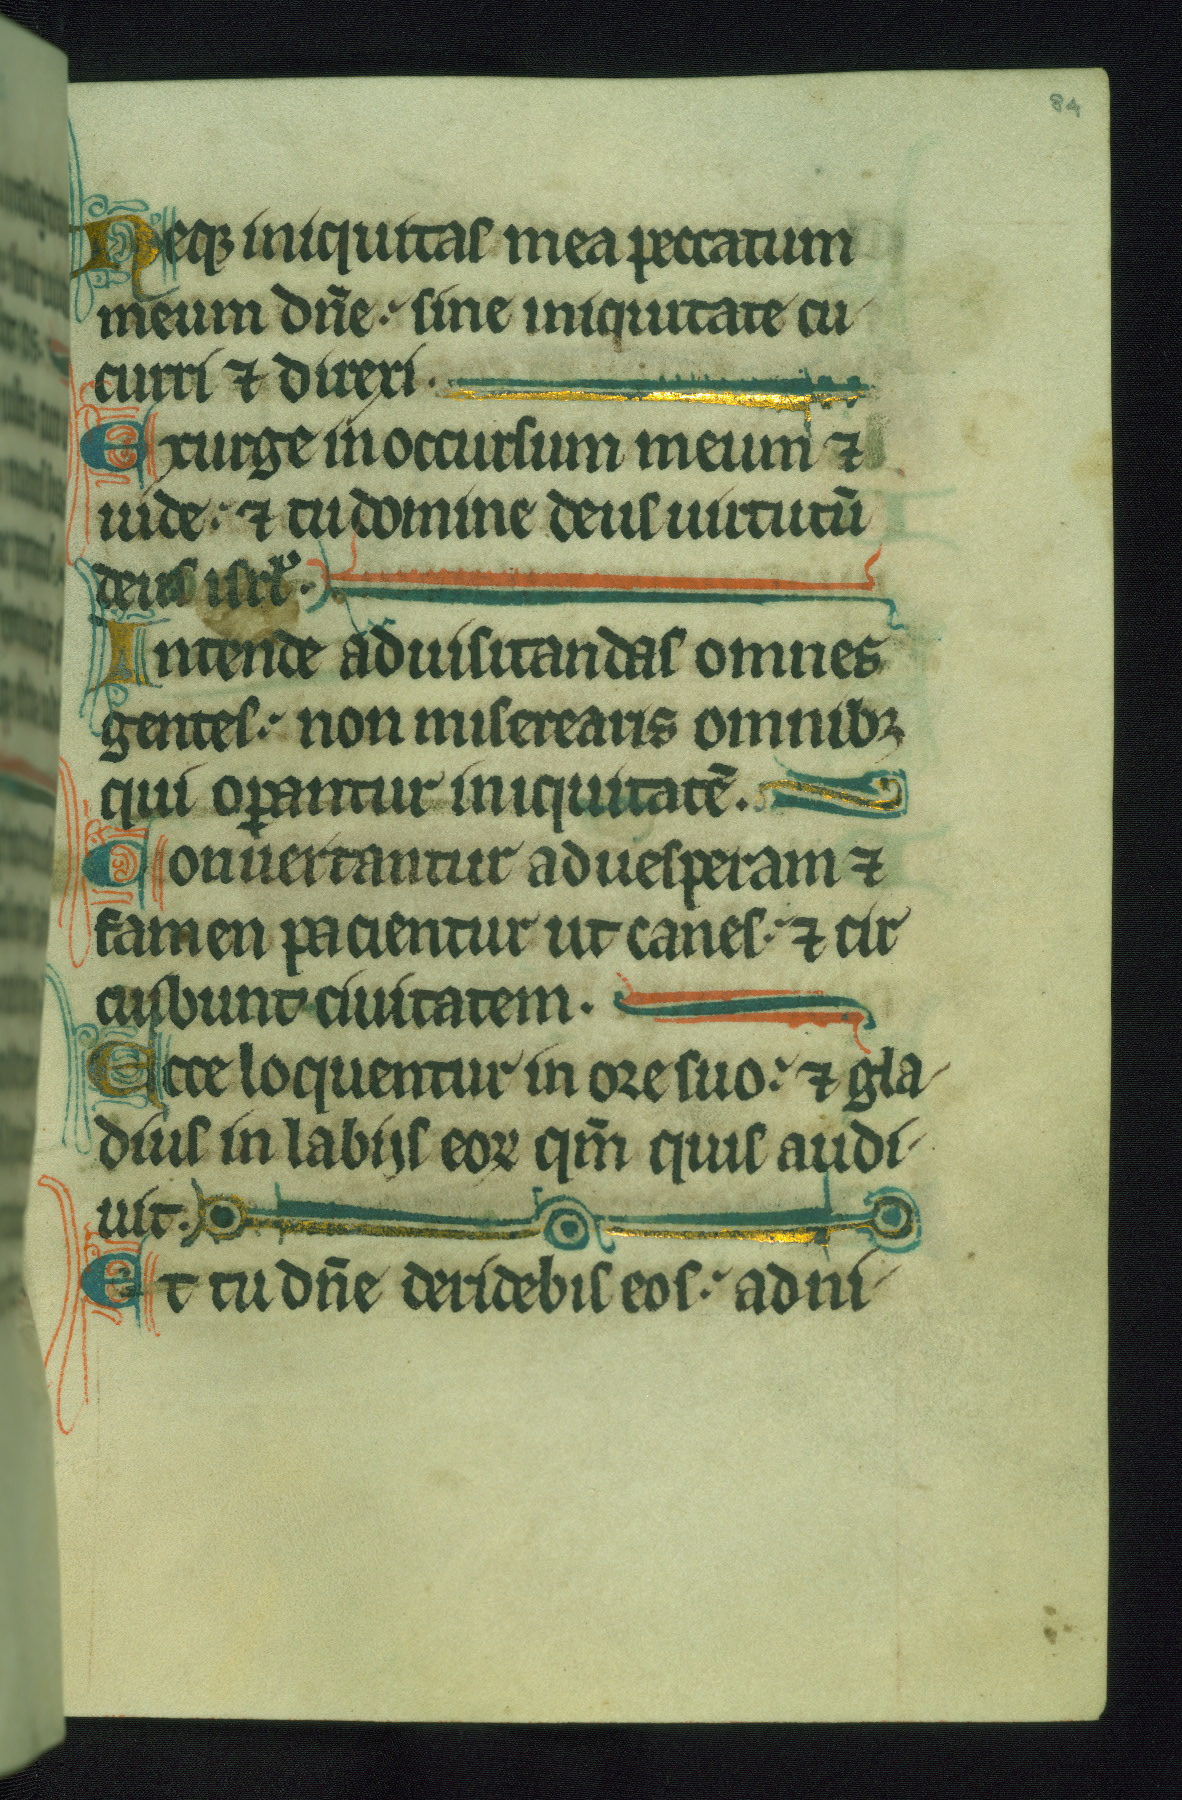 84
Neqꝫ iniquitas mea peccatum
meum dn̄e: sine iniquitate cu
curri ⁊ direxi.
Exurge in occursum meum ⁊
uide: ⁊ tu domine deus uirtutū
deus isrl̓.
Intende ad uisitandas omnes
gentes: non miserearis omnibꝫ
qui oꝑantur iniquitatē.
Conuertantur ad uesperam ⁊
famen pacientur ut canes: ⁊ cir
cuibunt ciuitatem.
Ecce loquentur in ore suo: ⁊ gla
dius in labijs eoꝝ qm̄ quis audi
uit.
Et tu dn̄e deridebis eos: ad ni